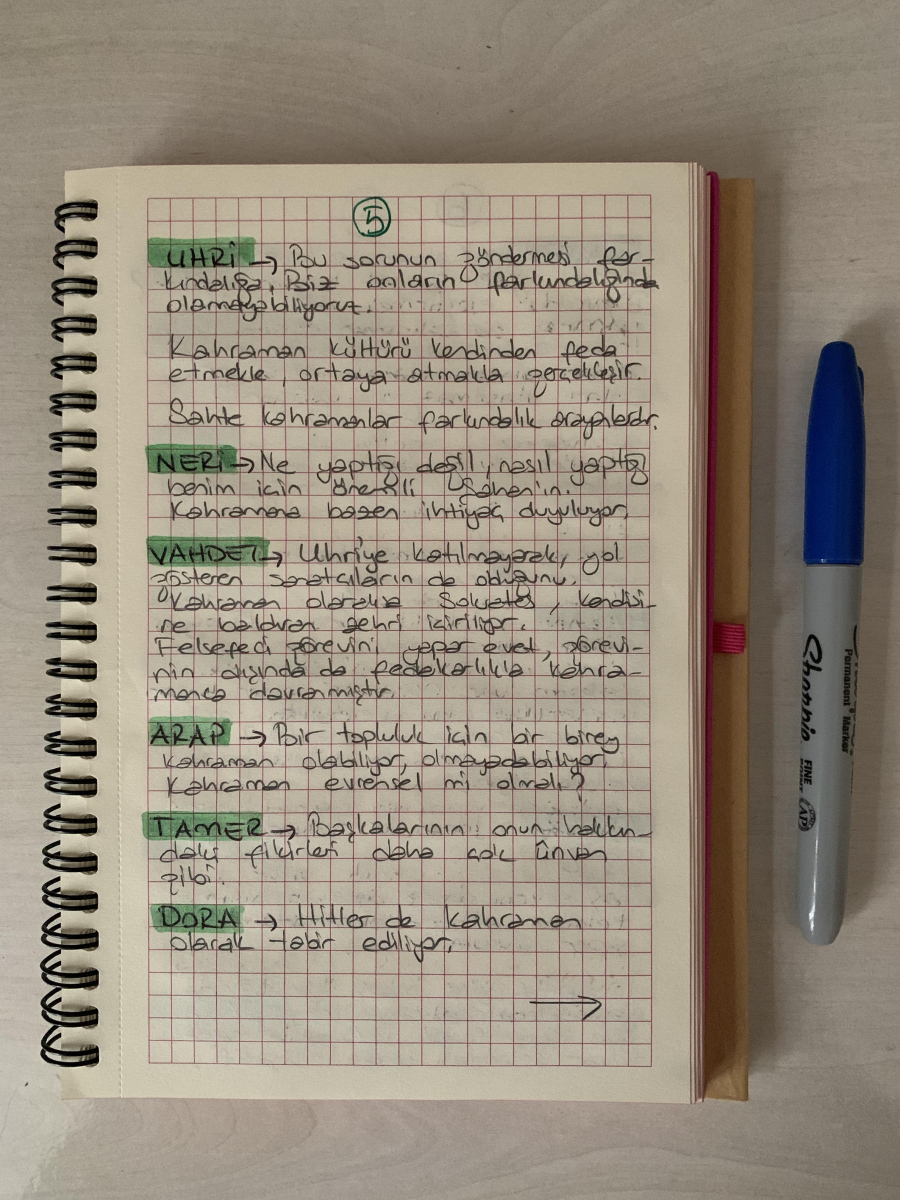 5
UHRİ → Bu sorunun göndermesi far-
kındalığa. Biz onların farkındalığında
olamayabiliyoruz.
Kahraman kültürü kendinden feda
etmekle, ortaya atmakla gerçekleşir.
Sahte kahramanlar farkındalık arayanlardır.
NERİ → Ne yaptığı değil, nasıl yaptığı
benim için önemli Şahen'in.
Kahramana bazen ihtiyaç duyuluyor.
VAHDET → Uhri'ye katılmayarak, yol
gösteren sanatçıların da olduğunu.
Kahraman olarak Sokrates, kendisi-
ne baldıran zehri içiriliyor.
Felsefeci görevini yapar evet, görevi-
nin dışında da fedakarlıkla kahra-
manca davranmıştır.
ARAP → Bir topluluk için bir birey
kahraman olabiliyor, olmayadabiliyor.
Kahraman evrensel mi olmalı?
TAMER → Başkalarının onun hakkın-
daki fikirleri daha çok ünvan
gibi.
DORA → Hitler de kahraman
olarak tabir ediliyor.
→
Sharpie
Permanent Marker
FINE
AP